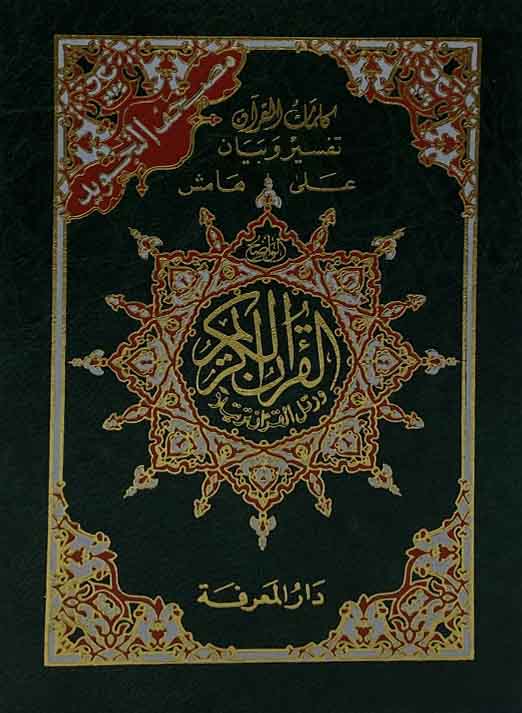 مصحف التجويد
كلمات القرآن
تفسير وبيان
على هامش
الواضح
القرآن الكريم
ورتل القرآن ترتيلا
دار المعرفة